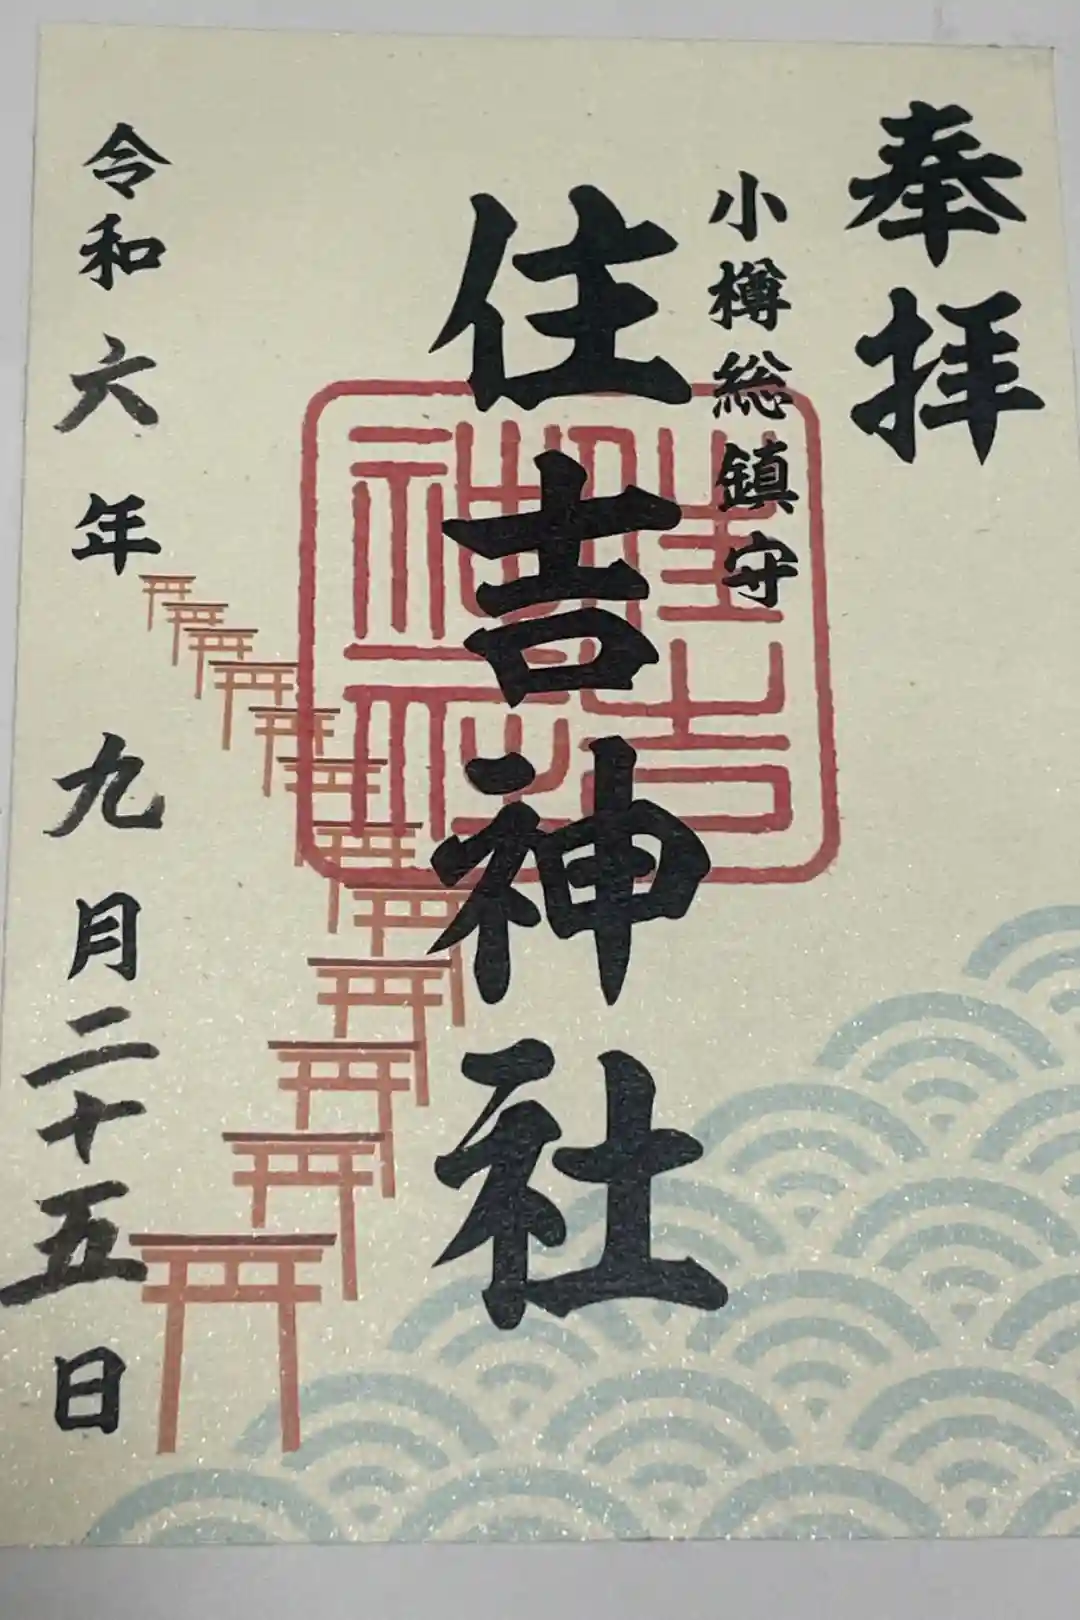 奉拝
小樽総鎮守
住吉神社
住吉神社
令和六年九月二十五日